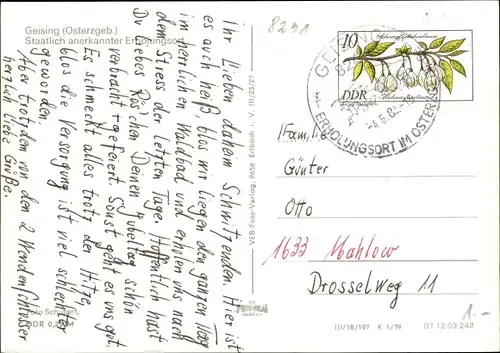 Geising (Osterzgeb.)
Staatlich anerkannter Erholungsort
8291
Ihr Lieben daheim Schwitzenden. Hier ist
es auch heiß blos wir liegen den ganzen Tag
im herrlichen Waldbad und erholen uns nach
dem Stress der letzten Tage. Hoffentlich hast
Du liebes Rös'chen Deinen Jubeltag schön
verbracht + gefeiert. Sonst geht es uns gut
Es schmeckt alles trotz der Hitze,
blos die Versorgung ist viel schlechter
geworden.
Aber trotzdem von den 2
herzlich liebe Grüße.
Foto Schubert,
DDR 0,20 M
VEB-Foto-Verlag, 9658 Erlbach i. V. III/23/27
10
DDR
GEISING
ERHOLUNGSORT IM OSTERZGEB
Familie
Günter
Otto
1633 Mahlow
Drosselweg 11
1.-
III/18/197 K 1/79
07 12 03 248